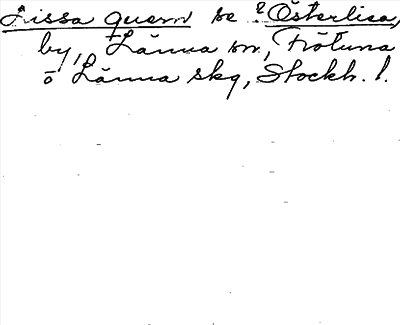 Lissa quarn se 2Österlisa,
by, Länna sn, Frötuna
o Länna skg, Stockh. l.